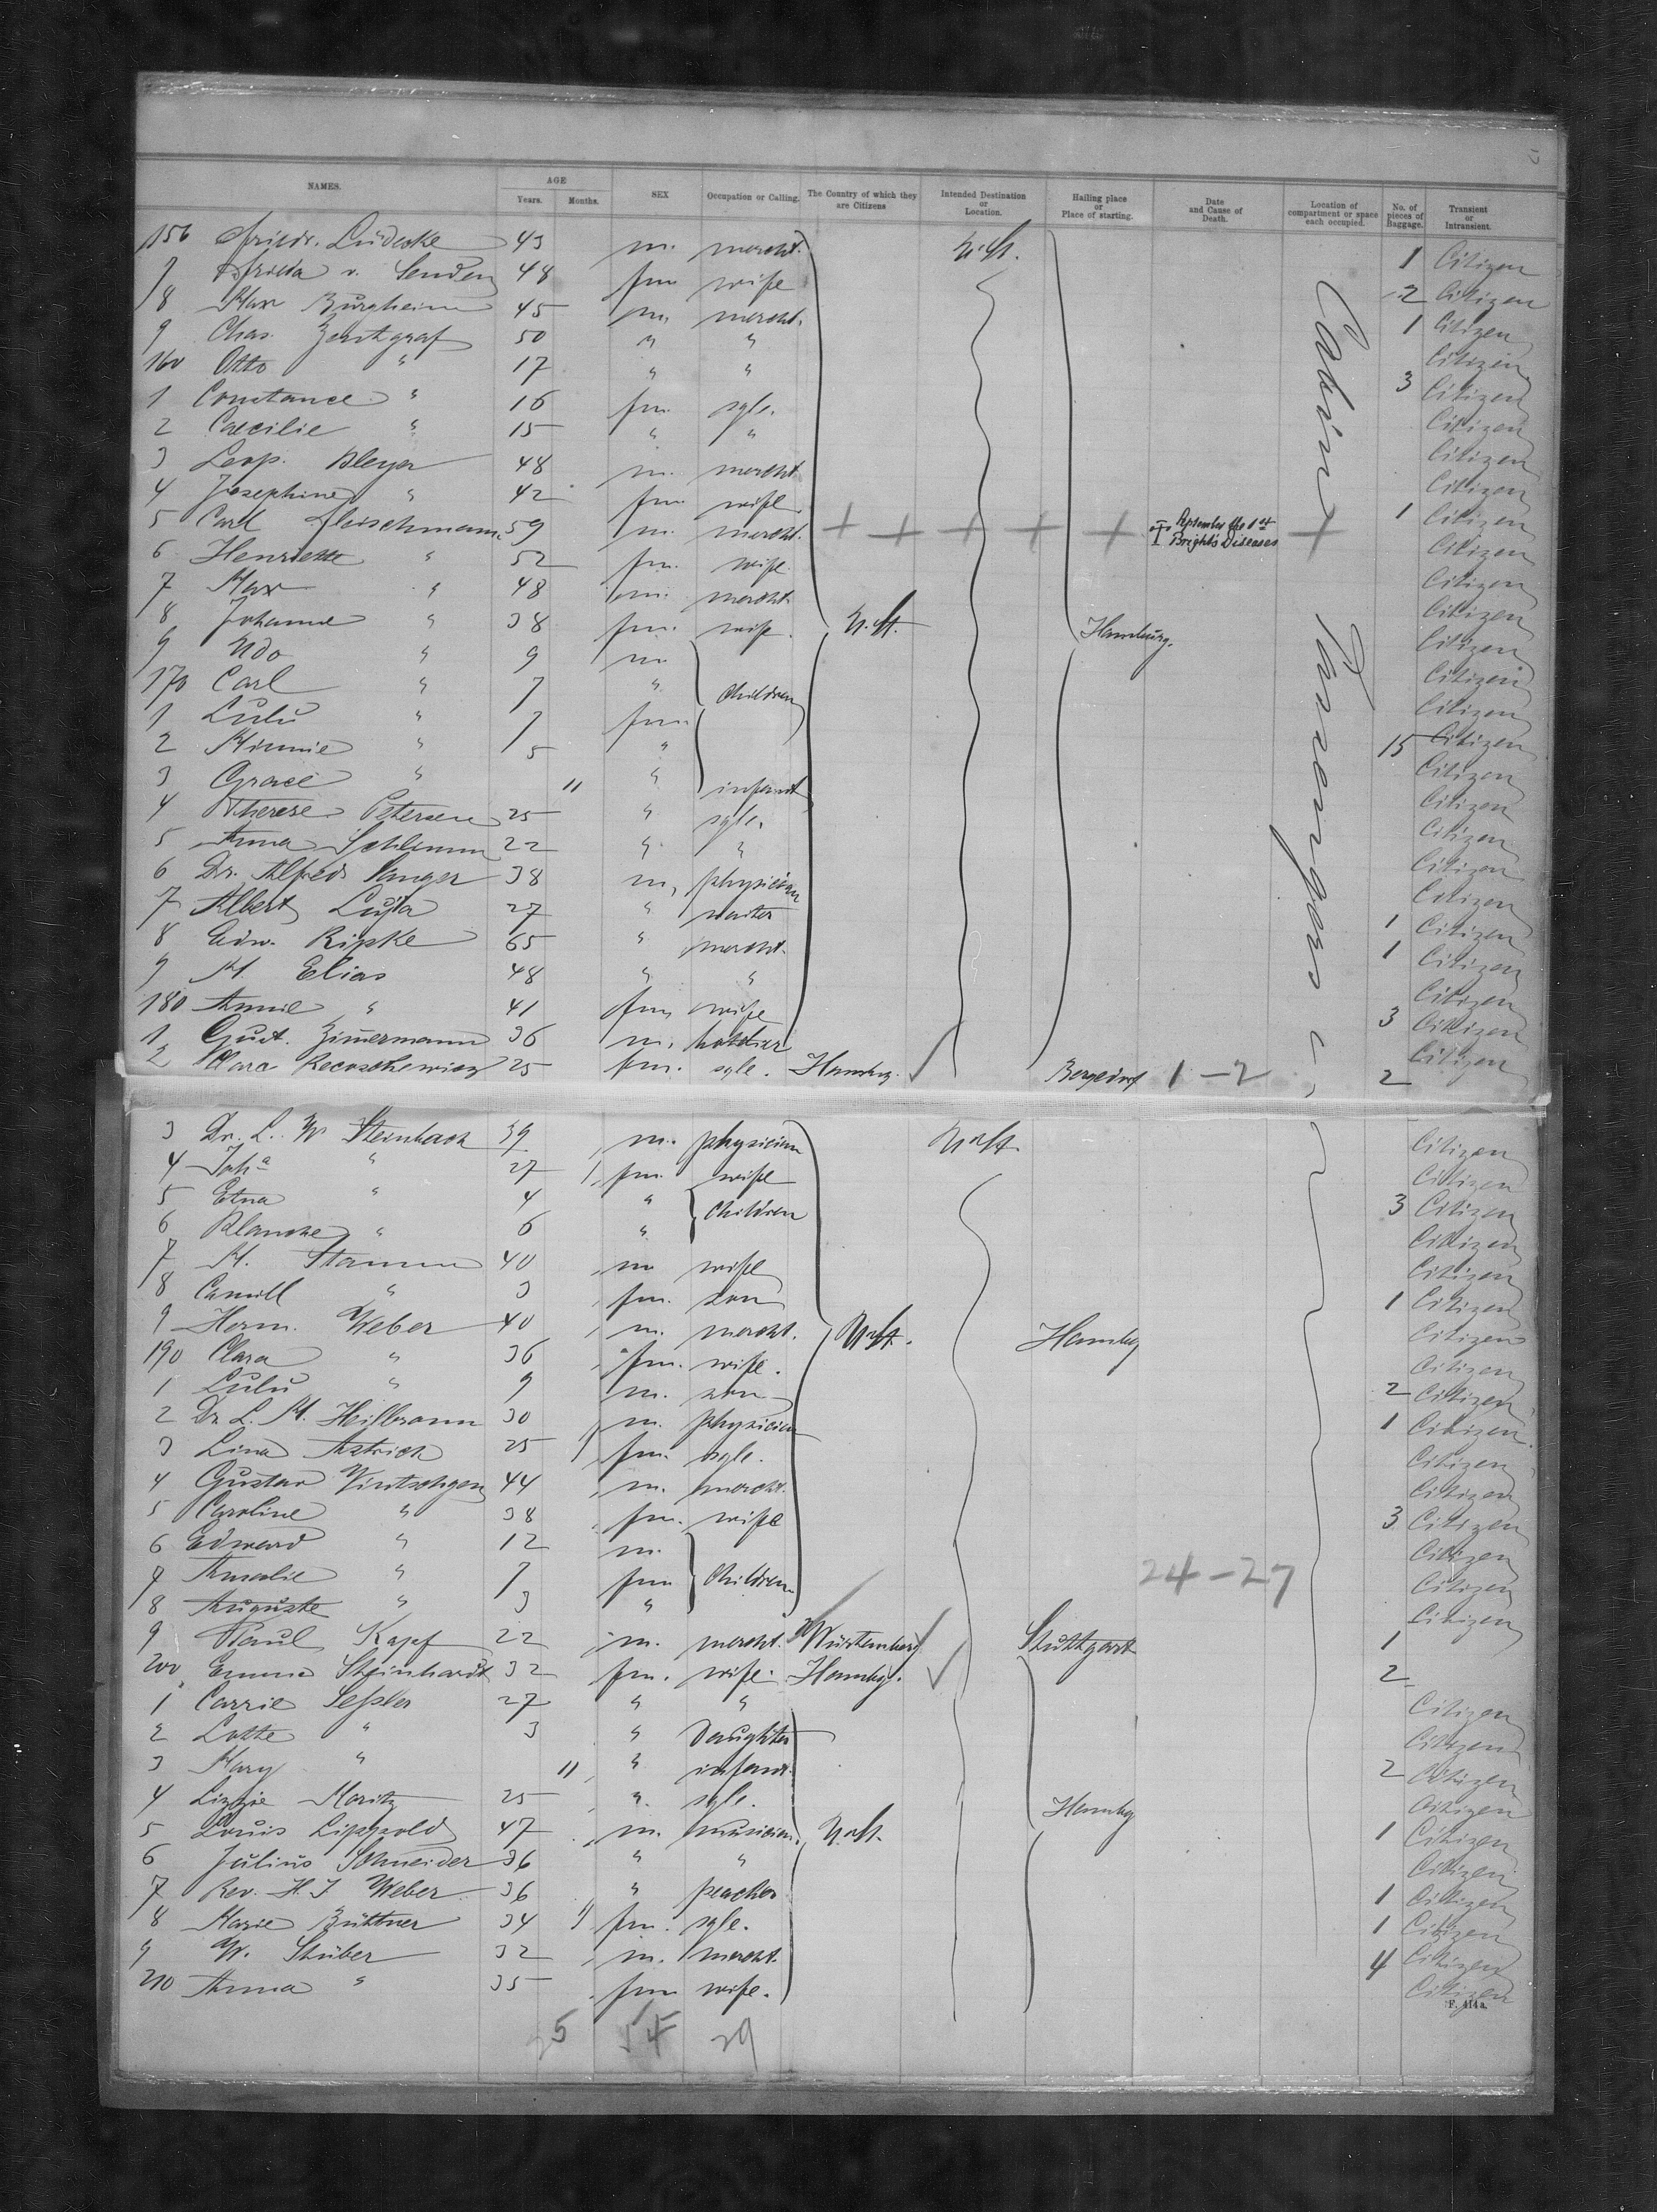 NAMES. AGE Years. Months. SEX Occupation or Calling. The Country of which they are Citizens Intended Destination or Location. Hailing place or Place of starting. Date and Cause of Death. Location of compartment or space each occupied. No. of pieces of Baggage. Transient or Intransient.
156 Friedr. Lüdecke 43 m. mercht. U.St. 1 Citizen
7 Frieda v. Senden 48 fm wife 2 Citizen
8 Max Burgheim 45 m. mercht. 1 Citizen
9 Chas. Zerstgraf 50 " " Citizen
160 Otto " 17 " " 3 Citizen
1 Constance " 16 fm. sgle. Citizen
2 Caecilie " 15 " " Citizen
3 Leop. Bleyer 48 m. mercht. Citizen
4 Josephine " 42 fm. wife 1 Citizen
5 Carl Fleischmann 59 m. mercht. + + + + + September the 1st Bright's Diseases + Citizen
6 Henriette " 52 fm. wife. Citizen
7 Max " 48 m. mercht. Citizen
8 Johanne " 38 fm. wife. U.St. Hamburg. Citizen
9 Udo " 9 m Citizen
170 Carl " 7 " Children Citizen
1 Lulu " 7 fm. Citizen
2 Minnie " 5 " 15 Citizen
3 Grace " 11 " infant Citizen
4 Therese Petersen 25 " sgle. Citizen
5 Anna Schlimm 22 " " Citizen
6 Dr. Alfred Sanger 38 m. physician Citizen
7 Albert 27 " waiter 1 Citizen
8 Edw. Ripke 65 " mercht. 1 Citizen
9 M. Elias 48 " " Citizen
180 Annie " 41 fm. wife 3 Citizen
1 Gust. Zimermann 36 m. hotelier Citizen
2 Clara 25 fm. sgle. Hambg. Bergedorf 1-2 " 2
Cabin Passengers
3 Dr. L. W. Steinbach 39 m. physician U.St. Citizen
4 Joha " 27 fm. wife Citizen
5 Etna " 4 " Children 3 Citizen
6 Blanche " 6 " Citizen
7 M. Stamm 40 m wife Citizen
8 Camill " 3 fm. son 1 Citizen
9 Herm. Weber 40 m. mercht. U.St. Hambg Citizen
190 Clara " 36 fm. wife. Citizen
1 Lulu " 9 m. son 2 Citizen
2 Dr. L. M. Heilbronn 30 m. physician 1 Citizen
3 Lina Astrich 25 fm. sgle. Citizen
4 Gustav 44 m. mercht. Citizen
5 Caroline " 38 fm. wife 3 Citizen
6 Edward " 12 m. Citizen
7 Amalie " 7 fm Children 24-27 Citizen
8 Auguste " 3 " Citizen
9 Paul Kapf 22 m. mercht. Württemberg Stuttgart 1
200 Emma Steinhardt 32 fm. wife. Hambg. 2
1 Carrie Sessler 27 " " Citizen
2 Lotte " 3 " Daughter Citizen
3 Mary " 11 " infant. 2 Citizen
4 Lizzie Moritz 25 " sgle. Hambg Citizen
5 Louis Lippold 47 m. musician. U.St. 1 Citizen
6 Julius Schneider 36 " " Citizen
7 Rev. H. J Weber 36 " peacher 1 Citizen
8 Marie Büttner 34 fm. sgle. 1 Citizen
9 W. Stüber 32 m. mercht. 4 Citizen
210 Anna " 35 fm wife. Citizen
F. 414a.
25 54 29